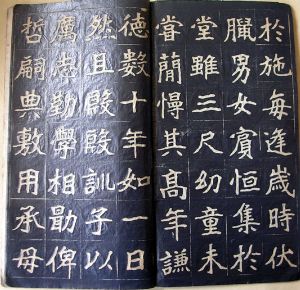 於施每逢歲時伏
臘男女賓恒集於
堂雖三尺幼童未
嘗簡慢其髙年謙
德數十年如一日
然且殷殷訓子以
厲志勤學相勖俾
哲嗣典敷用承母